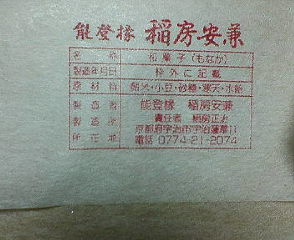 能登椽 稲房安兼
名称 和菓子(もなか)
製造年月日 枠外に記載
原材料 餅米・小豆・砂糖・寒天・水飴
製造者 能登椽 稲房安兼
製造所 責任者 稲房正治
所在地 京都府宇治市宇治蓮華11
電話 0774-21-2074